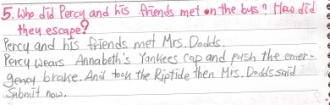 5. Who did Percy and his friends met on the bus? How did
they escape?
Percy and his friends met Mrs. Dodds.
Percy wears Annabeth's Yankees cap and push the emer-
gency brake. And took the Riptide then Mrs. Dodds said
Submit now.